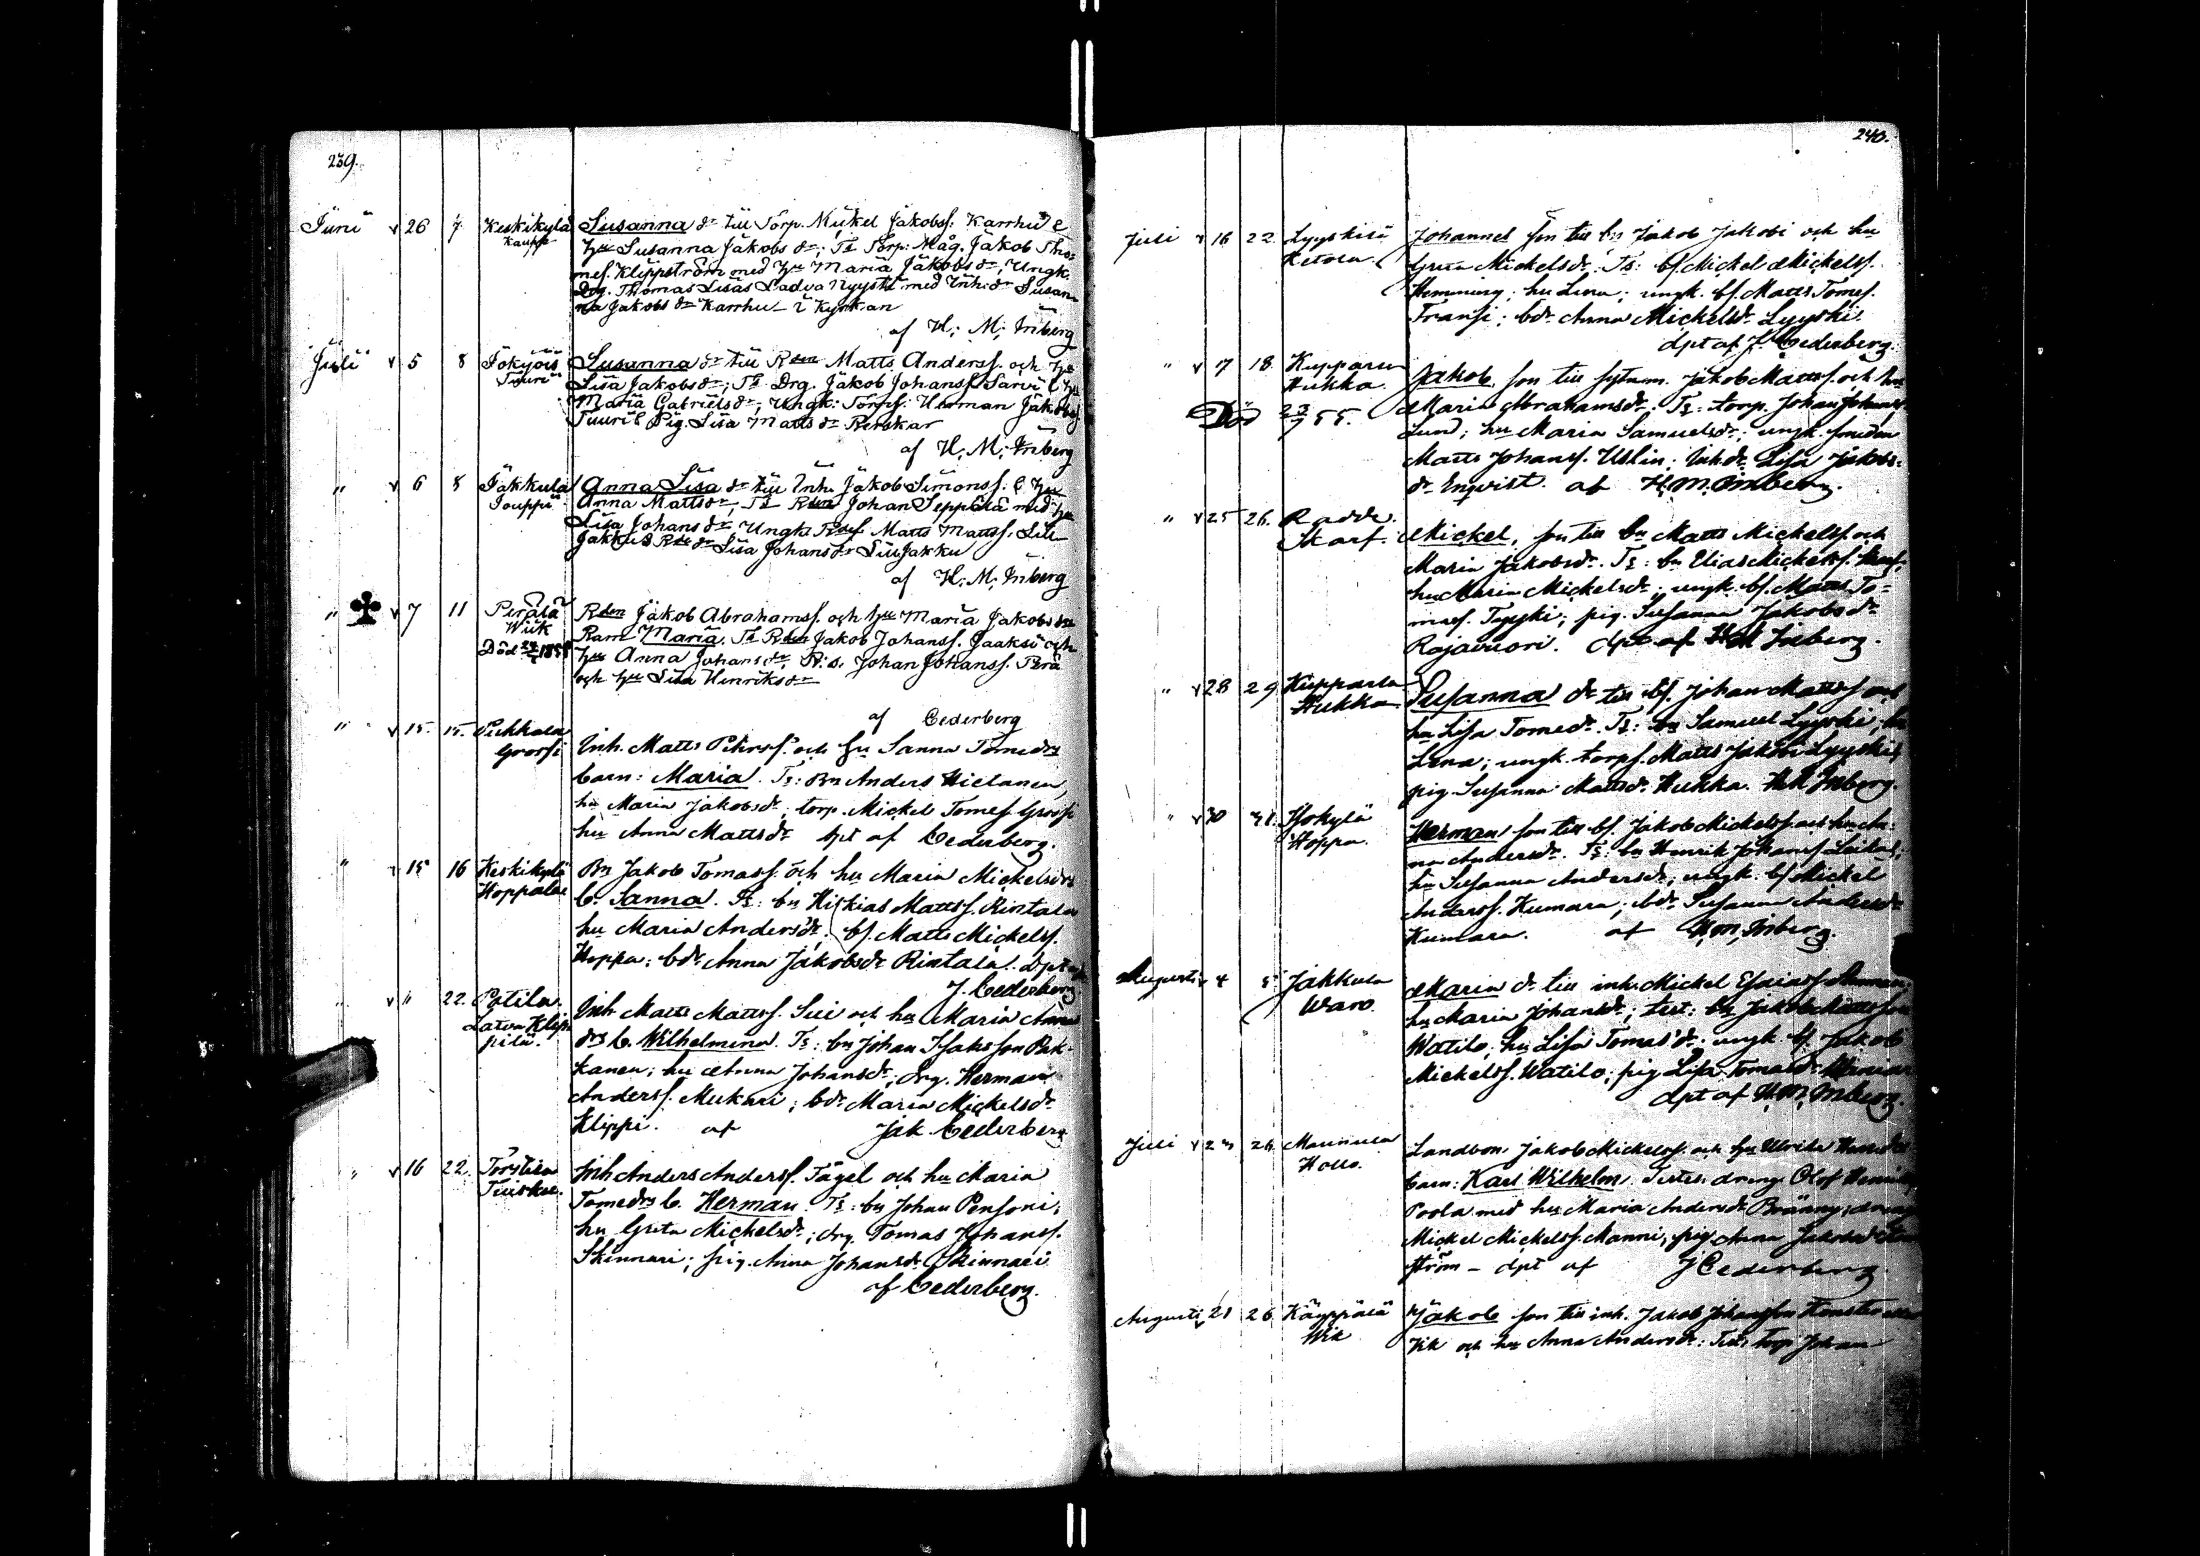 239.
Juni v 26 7 Keskikylä Susanna dr till Torp. Mickel Jakobss. Karrhu &
Kauppi hu Susanna Jakobs dr; Ts Torp: Måg. Jakob Tho-
mes. Klippström med hu Maria Jakobsdr, Ungk.
Drg. Thomas Lisas Ladva Nyysti med Inh: dr Susan-
na Jakobs dr Karrhu - i Kyrkan
af H: M: Inberg
Juli v 5 8 Jokipii Susanna dr till Rden Matts Anderss. och hu
Tuuri Lisa Jakobsdr; Ts Drg. Jakob Johanss. Sarvi & hu
Maria Gabrielsdr, Ungk: Torps: Herman Jakobss
Tuuri & Pig. Lisa Matts dr Renskar
af H. M. Inberg
" v 6 8 Jakkula Anna Lisa dr till Inh. Jakob Simonss: & hu
Jouppi Anna Mattsdr, Ts Rden Johan Seppälä med hu
Lisa Johans dr, Ungk: Rdes Matts Mattss. Lill-
Jakku & Rde dr Lisa Johansdr Lill Jakku
af H: M: Inberg
" v 7 11 Perälä Rden Jakob Abrahamss. och hu Maria Jakobsdrs
Wiik Barn Maria. Ts Rden Jakob Johanss. Jaaksi och
Död 1855 hu Anna Johansdr, R: s. Johan Johanss. Perä
och hu Lisa Henriksdr
af Cederberg
" v 15. 15. Pukkala Inh. Matts Pehrss. och hu Sanna Tomedrs
Grossi barn: Maria. Ts: Bn Anders Hietanen,
hu Maria Jakobsdr; torp. Mickel Tomes. Grossi
hu Anna Mattsdr dpt af Cederberg.
" v 15 16 Keskikylä Bn Jakob Tomass. och hu Maria Mickelsdrs
Hoppala b. Sanna. Ts: bn Hiskias Mattss. Rintala
hu Maria Andersdr; bs. Matts Mickelss.
Hoppa; bdr Anna Jakobsdr Rintala. Dpt af
J. Cederberg
" v " 22. Potila. Inh Matts Mattss. Sui och hu Maria Anna
Latva Klip- drs b. Wilhelmina. Ts: bn Johan Isaksson Pak-
pilä. kanen; hu Anna Johansdr; drg. Herman
Anderss. Mukari; bdr Maria Mickelsdr
Klippi. af Jak. Cederberg
" v 16 22. Torstila Inh Anders Anderss. Tägel och hu Maria
Tuisku. Tomedrs b. Herman. Ts: bn Johan Penssoni;
hu Greta Mickelsdr; drg. Tomas Johanss.
Skinnari; pig. Anna Johansdr Skinnari
af Cederberg.
240.
Juli v 16 22. Lyyskilä Johannes son till bn Jakob Jakobi och hu
Ketola Greta Mickelsdr. Ts: bs. Michel Mickelss.
Hemming; hu Lisa; ungk. bs. Matts Tomes.
Fransi; bdr Anna Mickelsdr Lyyski.
dpt af J. Cederberg.
" v 7 18. Kupparla Jakob, son till sytnm. Jakob Mattss. och hu
Hukka. Maria Abrahamsdr. Ts: torp. Johan Johanss.
Död 55. Lund; hu Maria Samuelsdr; ungk. smeden
Matts Johanss. Uslin; inhdr Lisa Jakobs-
dr Enqvist. af H. M. Inberg.
" v 25 26. Radde. Mickel, son till bn Matts Mickelss. och
Skarf. Maria Jakobsdr. Ts: bn Elias Mickelss. Skarf,
hu Maria Mickelsdr; ungk. bs. Matts To-
mes. Tyyski; pig. Susanna Jakobsdr
Rajavuori. dpt af H M Inberg.
" v 28 29 Kupparla Susanna dr till bs. Johan Mattss och
Hukka hu Lisa Tomedr. Ts: bn Samuel Lyyski, hu
Lena; ungk. torps. Matts Jakobss Lyyski;
pig Susanna Mattsdr Hukka. H M Inberg.
" v 30 31. Isokylä Herman son till bs. Jakob Mickelss och hu An-
Hoppa. na Andersdr. Ts: bn Henrik Johanss
hu Susanna Andersdr, ungk. bs Mickel
Anderss. Kumara; bdr Susanna Andersdr
Kumara. af H. M. Inberg.
Augusti v 4 5. Jakkula Maria dr till inh. Mickel
Waro. hu Maria Johansdr; test: bn Jakob Mattsson
Watilo; hu Lisa Tomasdr; ungk. bs. Jakob
Mickelss. Watilo; pig Lisa Tomasdr
dpt af H. M. Inberg.
Juli v 23 26. Mannula Landbon. Jakob Mickelss. och hu Ulrika
Hollo. barn: Karl Wilhelm. Testes: dreng Olof
Poola med hu Maria Andersdr Bränny; dreng
Mickel Mickelss. Manni, pig. Anna Jakobsdr
ström - dpt af J Cederberg.
Augusti v 21 26 Käyppälä Jakob son till inh. Jakob Johansson
Wik Kik och hu Anna Andersdr: Test: torp Johan